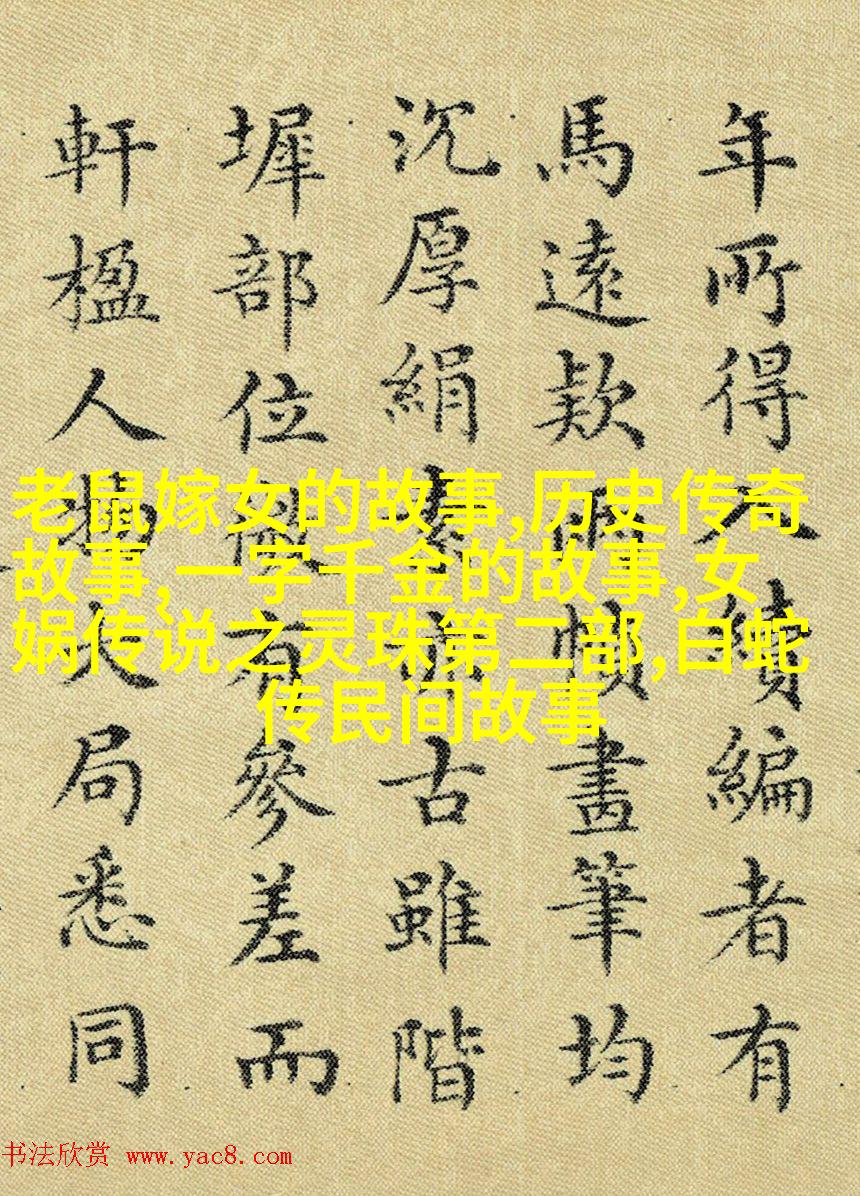 年所得入續編者有
馬遠款幀畫筆均
沉厚絹素亦古雖階
墀部位微有參差而
軒楹人物大局悉同
老鼠嫁女的故事,历史传奇
故事,一字千金的故事,女
娲传说之灵珠第二部,白蛇
传民间故事
书法欣赏 www.yac8.com